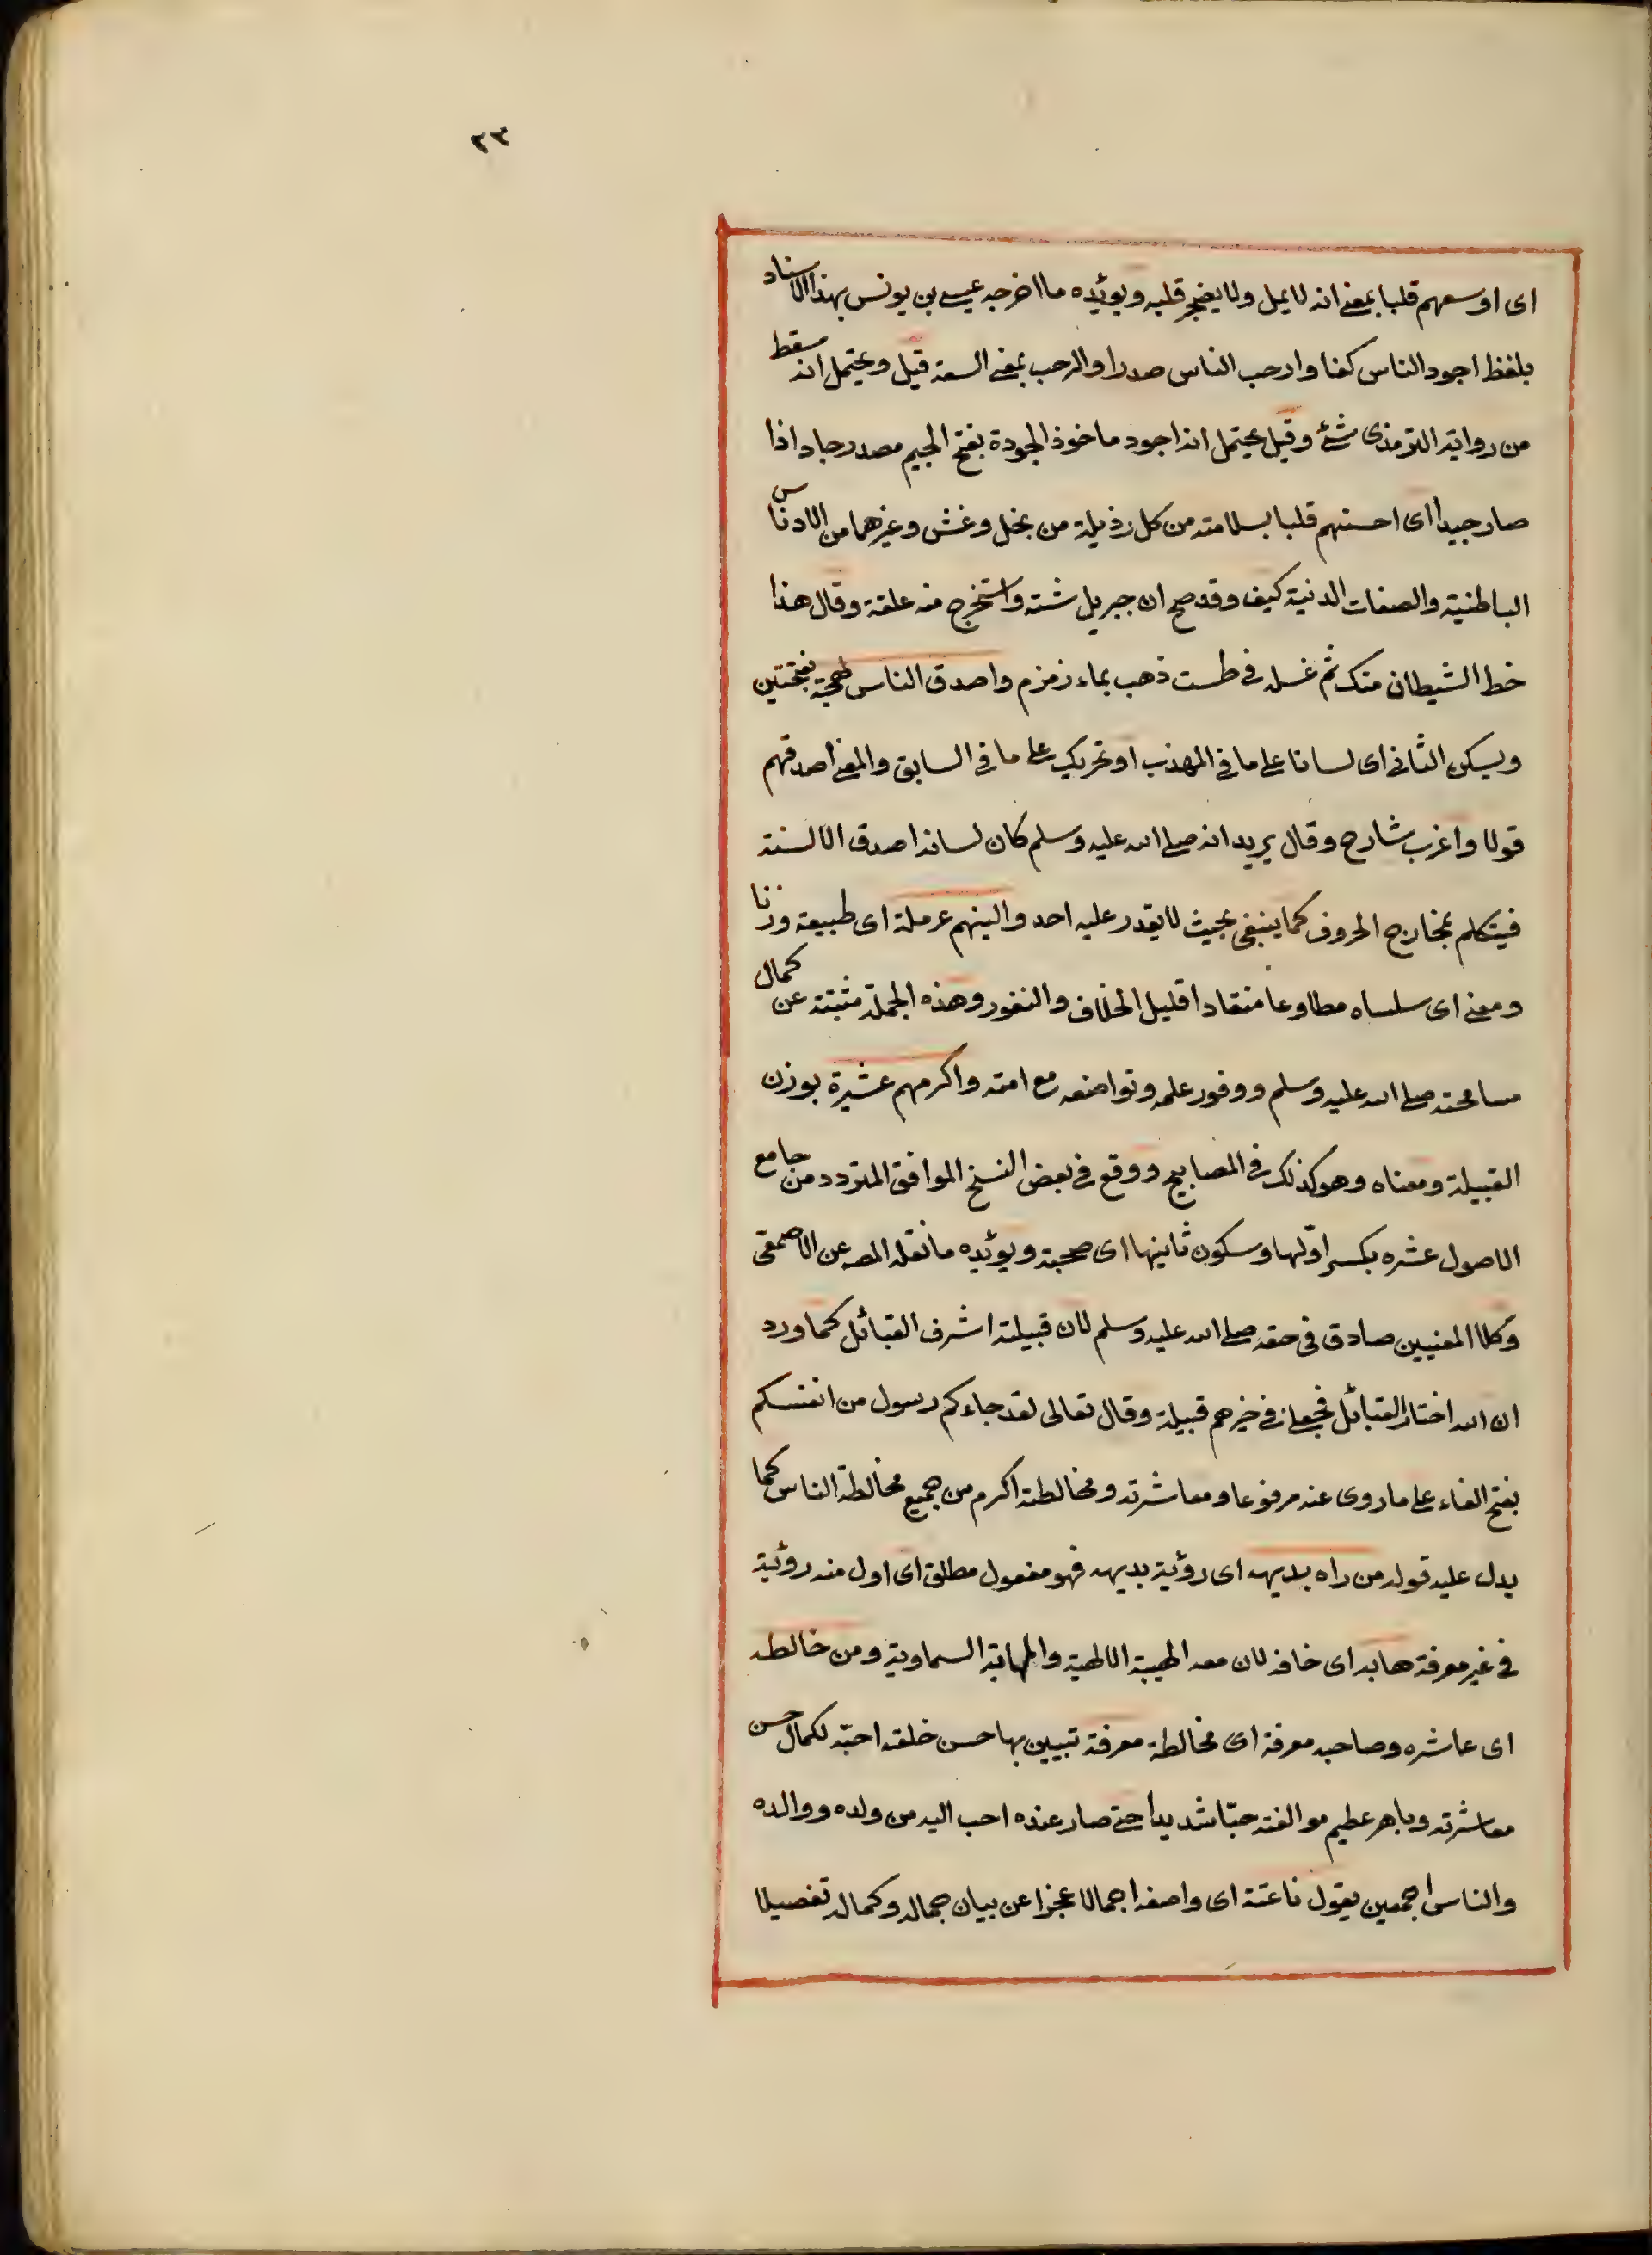 ٢٣
اى اوسعهم قلبا بمعنى انه لا يمل ولا يضجر قلبه ويؤيده ما اخرجه عيسى بن يونس بهذا الاسناد
بلفظ اجود الناس كفا وارحب الناس صدرا والرحب بمعنى السعة قيل ويحتمل انه سقط
من رواية الترمذى شئ وقيل يحتمل انه اجود ماخوذ الجودة بفتح الجيم مصدر جاد اذا
صار جيدا اى احسنهم قلبا بسلامته من كل رذيلة من بخل وغش وغيرهما من الادناس
الباطنية والصفات الدنية كيف وقد صح ان جبريل شقه واستخرج منه علقة وقال هذا
خط الشيطان منك ثم غسله فى طست ذهب بماء زمزم واصدق الناس لهجة بفتحتين
ويسكن الثانى اى لسانا على ما فى المهذب او تحريك على ما فى السابق والمعنى اصدقهم
قولا واغرب شارح وقال يريد انه صلى الله عليه وسلم كان لسانه اصدق الالسنة
فيتكلم بمخارج الحروف كما ينبغى بحيث لا يقدر عليه احد والينهم عرملة اى طبيعة وزنا
ومعنى اى سلساه مطاوعا منقادا قليل الخلاف والنفور وهذه الجملة مثبتة عن كمال
مسامحته صلى الله عليه وسلم ووفور علمه وتواضعه مع امته واكرمهم عشيرة بوزن
القبيلة ومعناه وهو كذلك فى المصابيح ووقع فى بعض النسخ الموافق المتودد من جامع
الاصول عشره بكسر اوّلها وسكون ثانيها اى صحبة ويؤيده ما نقله المص عن الاصمعى
وكلا المعنيين صادق فى حقه صلى الله عليه وسلم لان قبيلته اشرف القبائل كما ورد
ان الله اختار القبائل فجعلنى فى خيرهم قبيلة وقال تعالى لقد جاءكم رسول من انفسكم
بفتح الفاء على ما روى عنه مرفوعا ومعاشرته ومخالطته اكرم من جميع مخالطة الناس كما
يدل عليه قوله من راه بديهه اى رؤية بديهه فهو مفعول مطلق اى اول منه رؤية
فى غير معرفة هابه اى خافه لان معه الهيبة الالهية والمهابة السماوية ومن خالطه
اى عاشره وصاحبه معرفة اى مخالطة معرفة تبيين بها حسن خلقه احبّه لكمال حسن
معاشرته وباهر عظيم موالفته حبّا شديدا حتى صار عنده احب اليه من ولده ووالده
والناس اجمعين يقول ناعته اى واصفه اجمالا عجزا عن بيان جماله وكماله تفصيلا